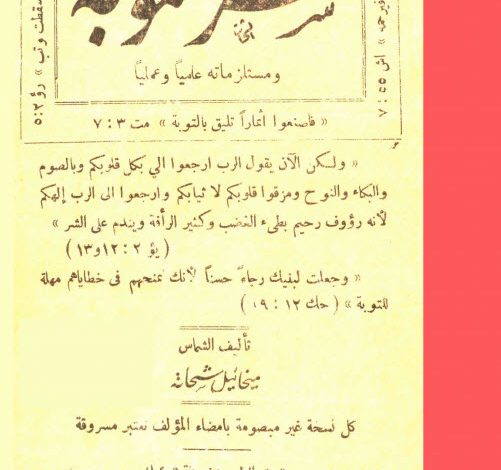 سر التوبة
ومستلزماته علمياً وعملياً
« فاصنعوا أثماراً تليق بالتوبة » مت ٣ : ٧
« ولكن الآن يقول الرب ارجعوا الي بكل قلوبكم وبالصوم
والبكاء والنوح ومزقوا قلوبكم لا ثيابكم وارجعوا الى الرب إلهكم
لأنه رؤوف رحيم بطىء الغضب وكثير الرأفة ويندم على الشر »
( يؤ ٢ : ١٢ و١٣ )
« وجعلت لبنيك رجاءً حسناً لأنك تمنحهم فى خطاياهم مهلة
للتوبة » ( حك ١٢ : ١٩ )
تأليف الشماس
ميخائيل شحاته
كل نسخة غير مبصومة بامضاء المؤلف تعتبر مسروقة
سقطت وتب » رؤ ٢ : ٥
» اش ٥٥ : ٧